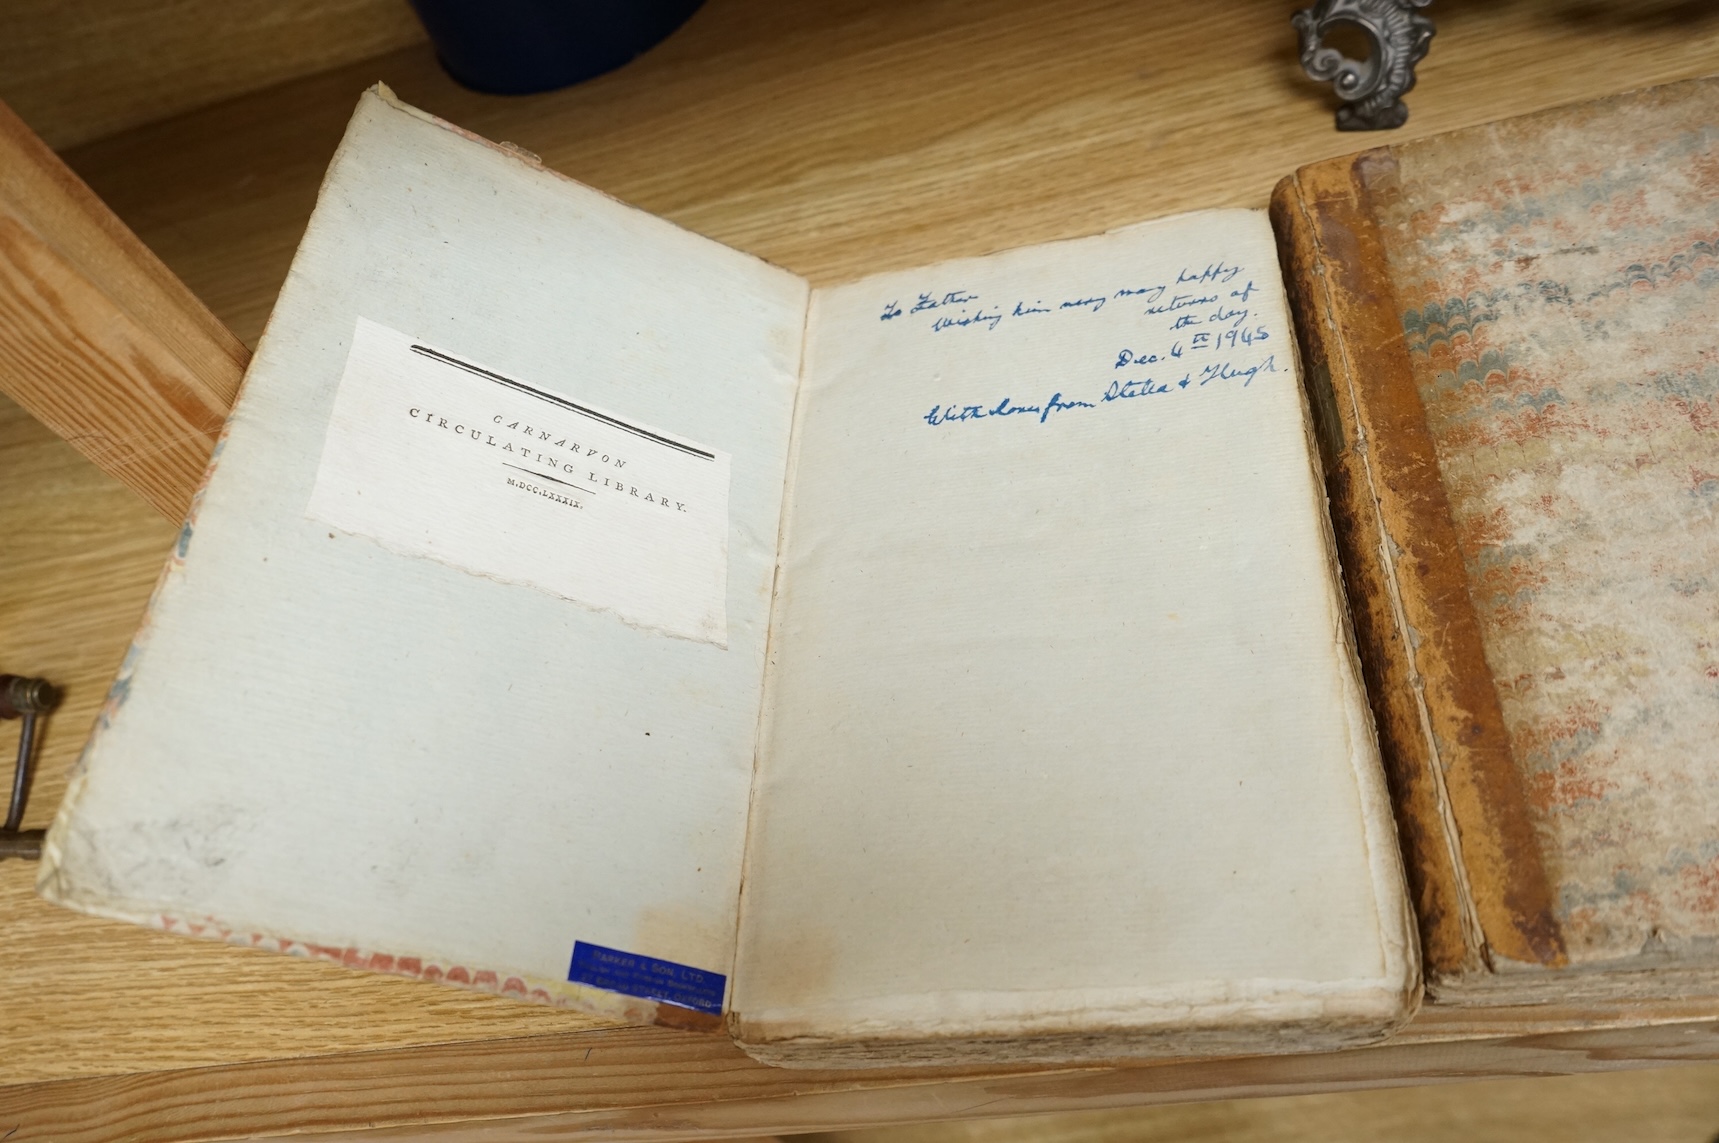 CARNARVON
CIRCULATING LIBRARY.
M.DCC.LXXXIX.
PARKER & SON, LTD.
27 BROAD STREET, OXFORD
To Father
Wishing him many many happy
returns of
the day.
Dec. 4th 1945
With love from Stella & Hugh.